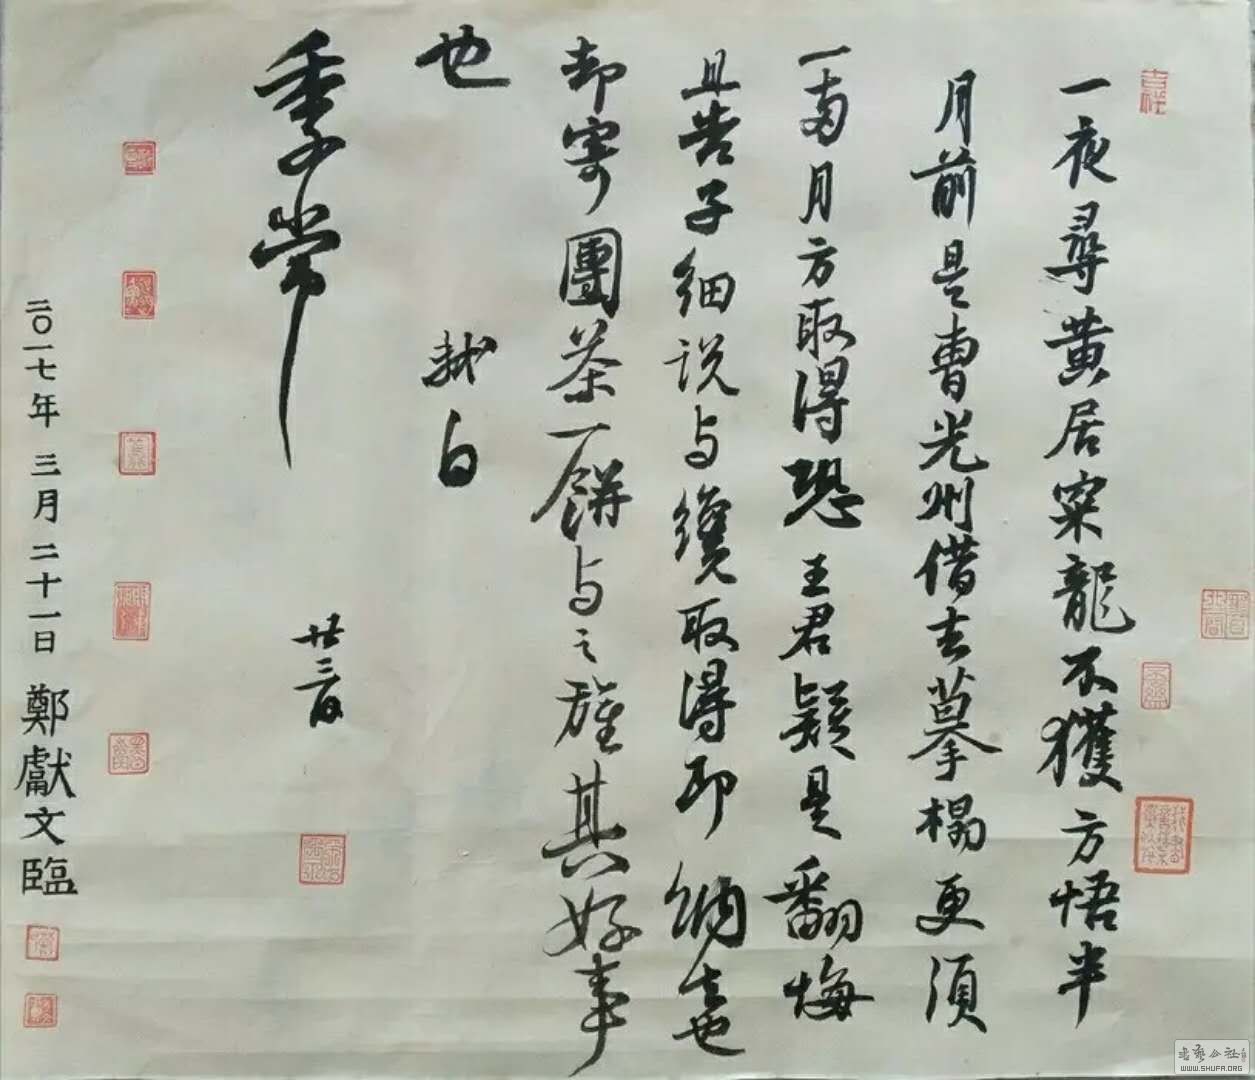 一夜尋黄居寀龍不獲方悟半
月前是曹光州借去摹榻更須
一兩月方取得恐王君疑是翻悔
且告子細説与纔取得即納去也
却寄團茶一餅与之旌其好事
也
軾白
季常
廿三日
二〇一七年三月二十一日鄭獻文臨
吉祥
書藝公社
WWW.SHUFA.ORG